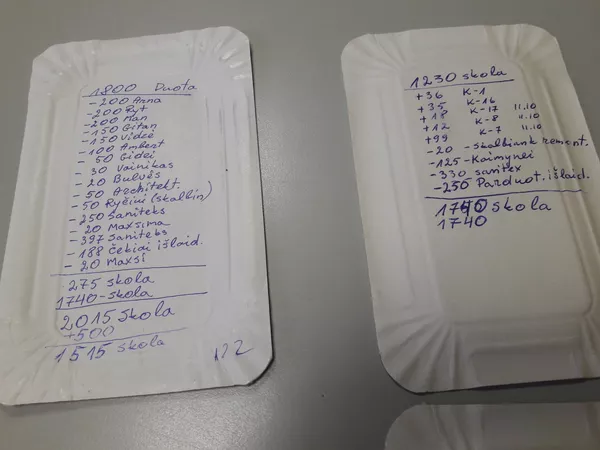 1800 Duota
-200 Anna
-200 Ryt
-200 Man
-150 Gitan
-150 Vidze
-100 Ambert
- 50 Gidei
- 30 Vainikas
- 20 Bulvės
- 50 Architekt.
- 50 Ryčiui (skalbin)
- 250 Saniteks
- 20 Maxsima
- 397 Saniteks
- 188 Čekiai išlaid.
- 20 Maxsi
275 skola
1740-skola
2015 skola
+500
1515 skola
1230 skola
+36 K-1
+35 K-16
+18 K-17 11.10
+12 K-8 11.10
+99 K-7 11.10
-20 -skalbiank remont.
-125-Kaimynei
-330-sanitex
-250 Parduot. išlaid.
1740 skola
1740